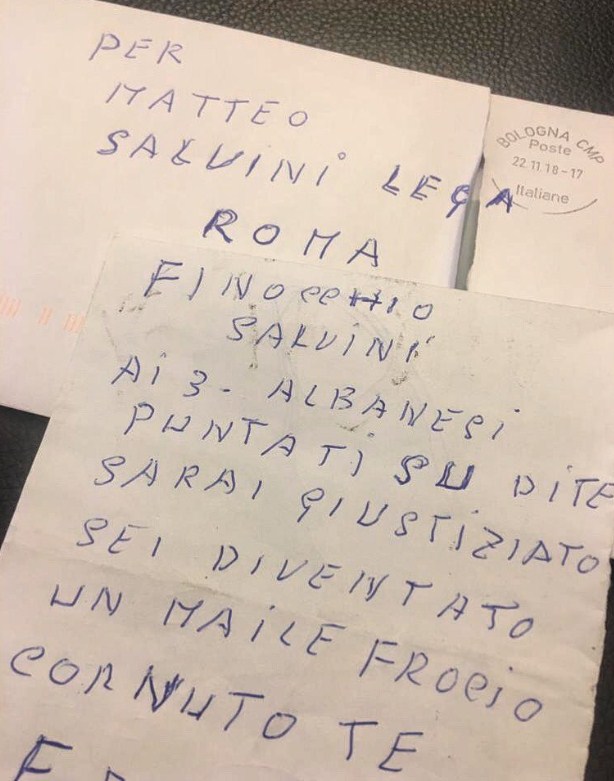 PER
MATTEO
SALVINI LEGA
ROMA
BOLOGNA CMP
Poste
22.11.18-17
Italiane
FINOCCHIO
SALVINI
Ai 3- ALBANESi
PUNTATi SU DiTE
SARAI GIUSTiZIATO
SEI DIVENTATO
UN MAiLE FROCiO
CORNUTO TE